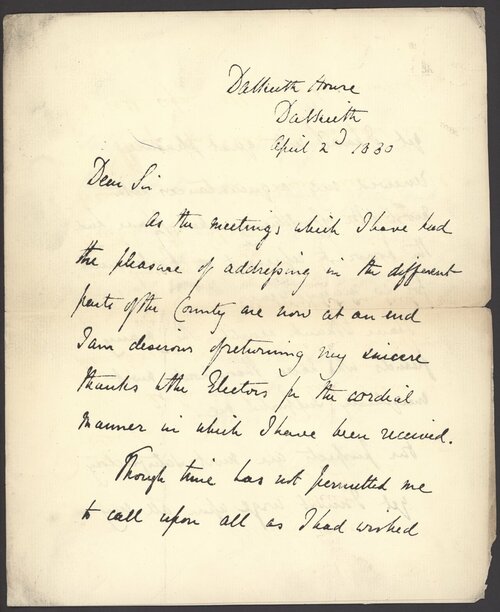 Dalkeith House
Dalkeith
April 2d 1880
Dear Sir
As the meetings which I have had
the pleasure of addressing in the different
parts of the County are now at an end
I am desirous of returning my sincere
thanks to the Electors for the cordial
manner in which I have been received.
Though time has not permitted me
to call upon all as I had wished